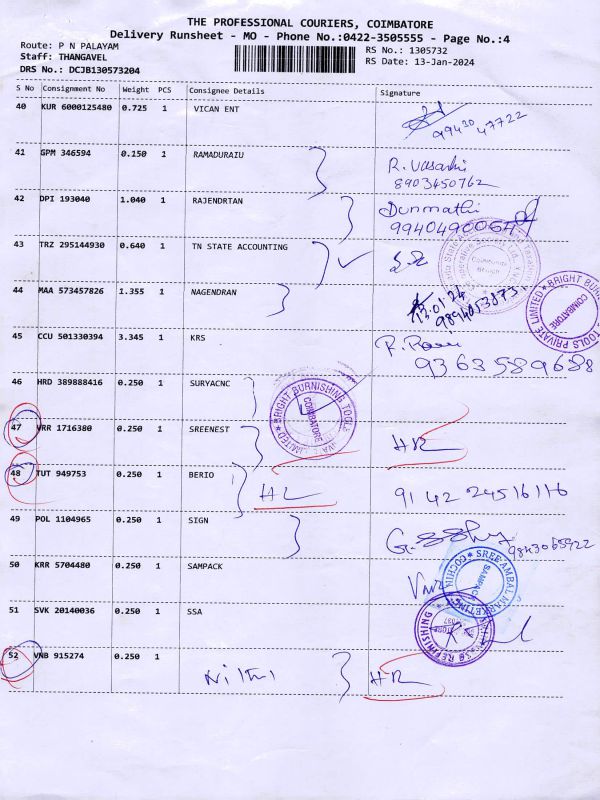 THE PROFESSIONAL COURIERS, COIMBATORE
Delivery Runsheet - MO - Phone No.:0422-3505555 - Page No.:4
Route: P N PALAYAM
RS No.: 1305732
Staff: THANGAVEL
RS Date: 13-Jan-2024
DRS No.: DCJB130573204
S No Consignment No Weight PCS Consignee Details Signature
40 KUR 6000125480 0.725 1 VICAN ENT
99430 47722
41 GPM 346594 0.150 1 RAMADURAIU
R. Vasanthi
8903450762
42 DPI 193040 1.040 1 RAJENDRTAN
Dunmathi
9940490064
43 TRZ 295144930 0.640 1 TN STATE ACCOUNTING
44 MAA 573457826 1.355 1 NAGENDRAN
13.01.24
45 CCU 501330394 3.345 1 KRS
9363589688
BRIGHT BURNISHING TOOLS PRIVATE LIMITED
COIMBATORE
46 HRD 389888416 0.250 1 SURYACNC
BRIGHT BURNISHING TOOLS PRIVATE LIMITED
COIMBATORE
47 VRR 1716380 0.250 1 SREENEST
HR
48 TUT 949753 0.250 1 BERIO
HL
91 42 24516116
49 POL 1104965 0.250 1 SIGN
9843065922
50 KRR 5704480 0.250 1 SAMPACK
SREE AMBAL MARKETING
SAMPACK
51 SVK 20140036 0.250 1 SSA
REFINISHING
52 VNB 915274 0.250 1
HR